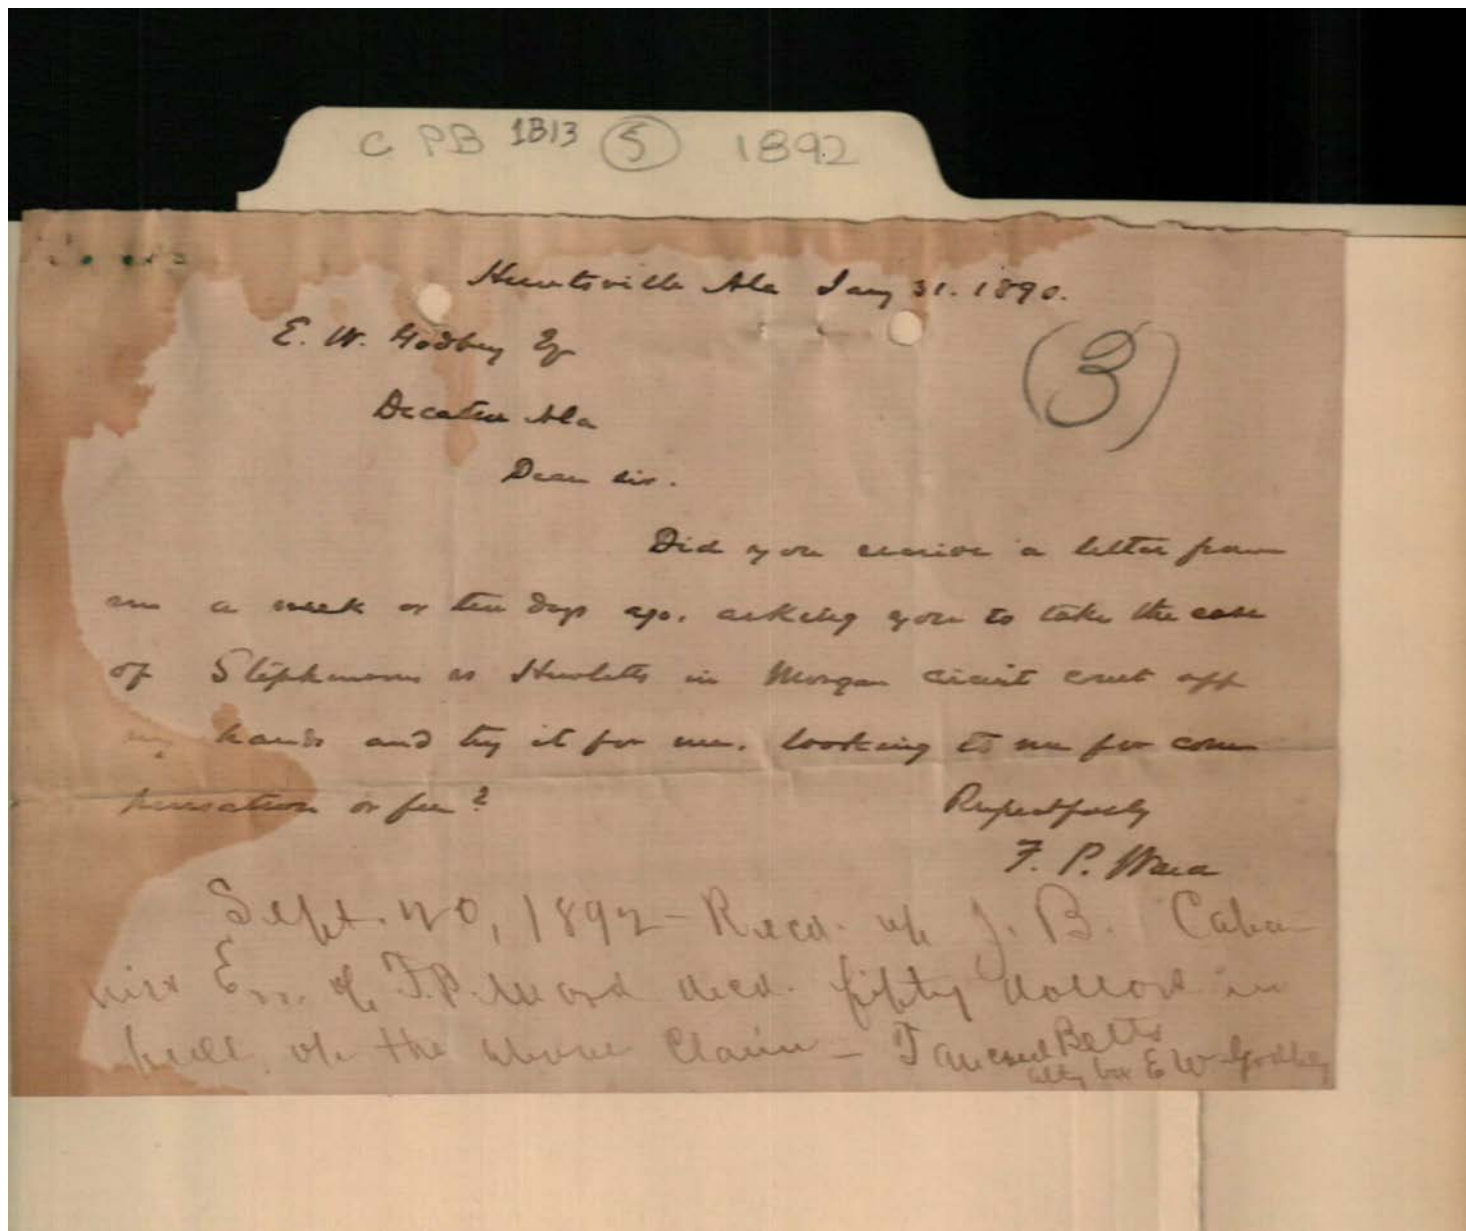 C PB 1B13 (5) 1892
Huntsville Ala Jany 31. 1890.
E. W. Godbey Esq
(3)
Decatur Ala
Dear sir.
Did you receive a letter from
me a week or ten days ago, asking you to take the case
of Stephenson vs Hewletts in Morgan circuit court off
my hands and try it for me, looking to me for com
pensation or fee?
Respectfully
F. P. Ward
Sept. 20, 1892 - Recd. of J. B. Caba
niss Exr. of F.P. Ward decd. fifty dollars in
full of the above claim - Tancred Betts
atty for E W Godbey